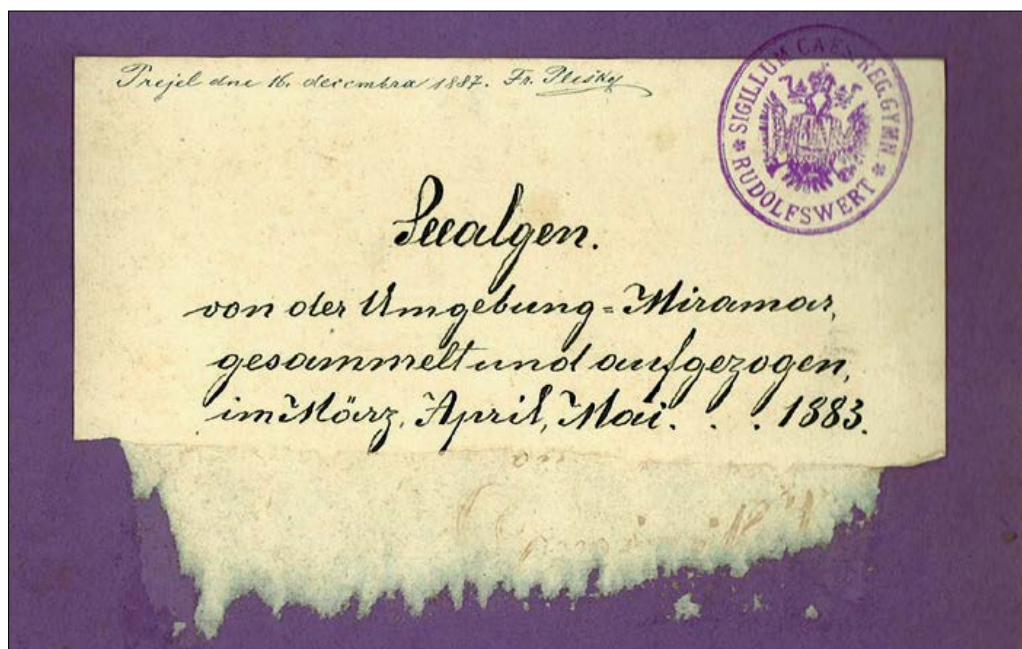 Prejel dne 16. decembra 1887. Fr.
SIGILLUM CAES. REG. GYMN
* RUDOLFSWERT *
Seealgen.
von der Umgebung = Miramar,
gesammelt und aufgezogen,
im März, April, Mai . . . 1883.